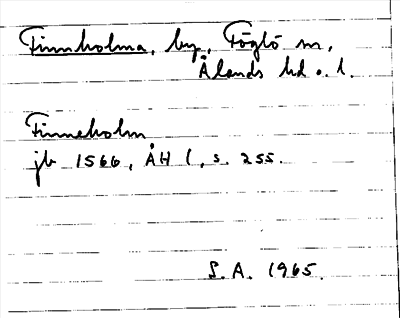 Finnholma, by, Föglö sn,
Ålands hd o. l.
Finneholm
jb 1566, ÅH 1, s. 255.
S.A. 1965.